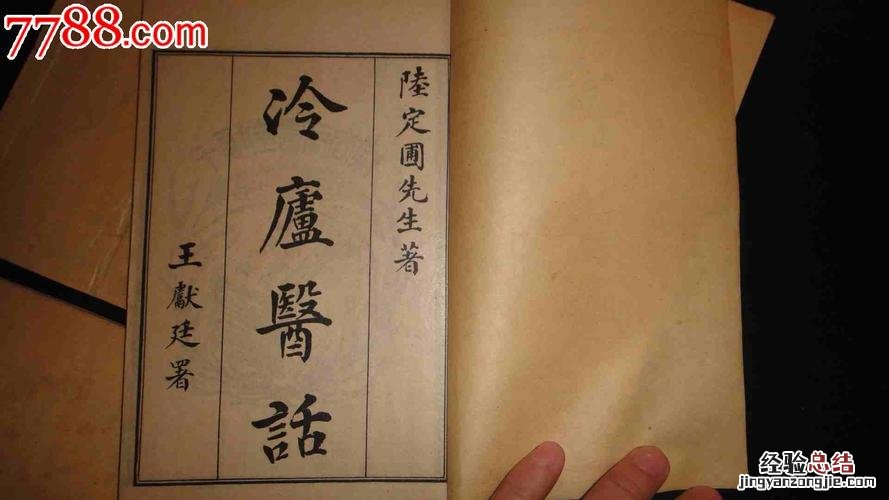 7788.com
陸定圃先生著
冷廬醫話
王獻廷署
经验总结
jingyanzongjie.com